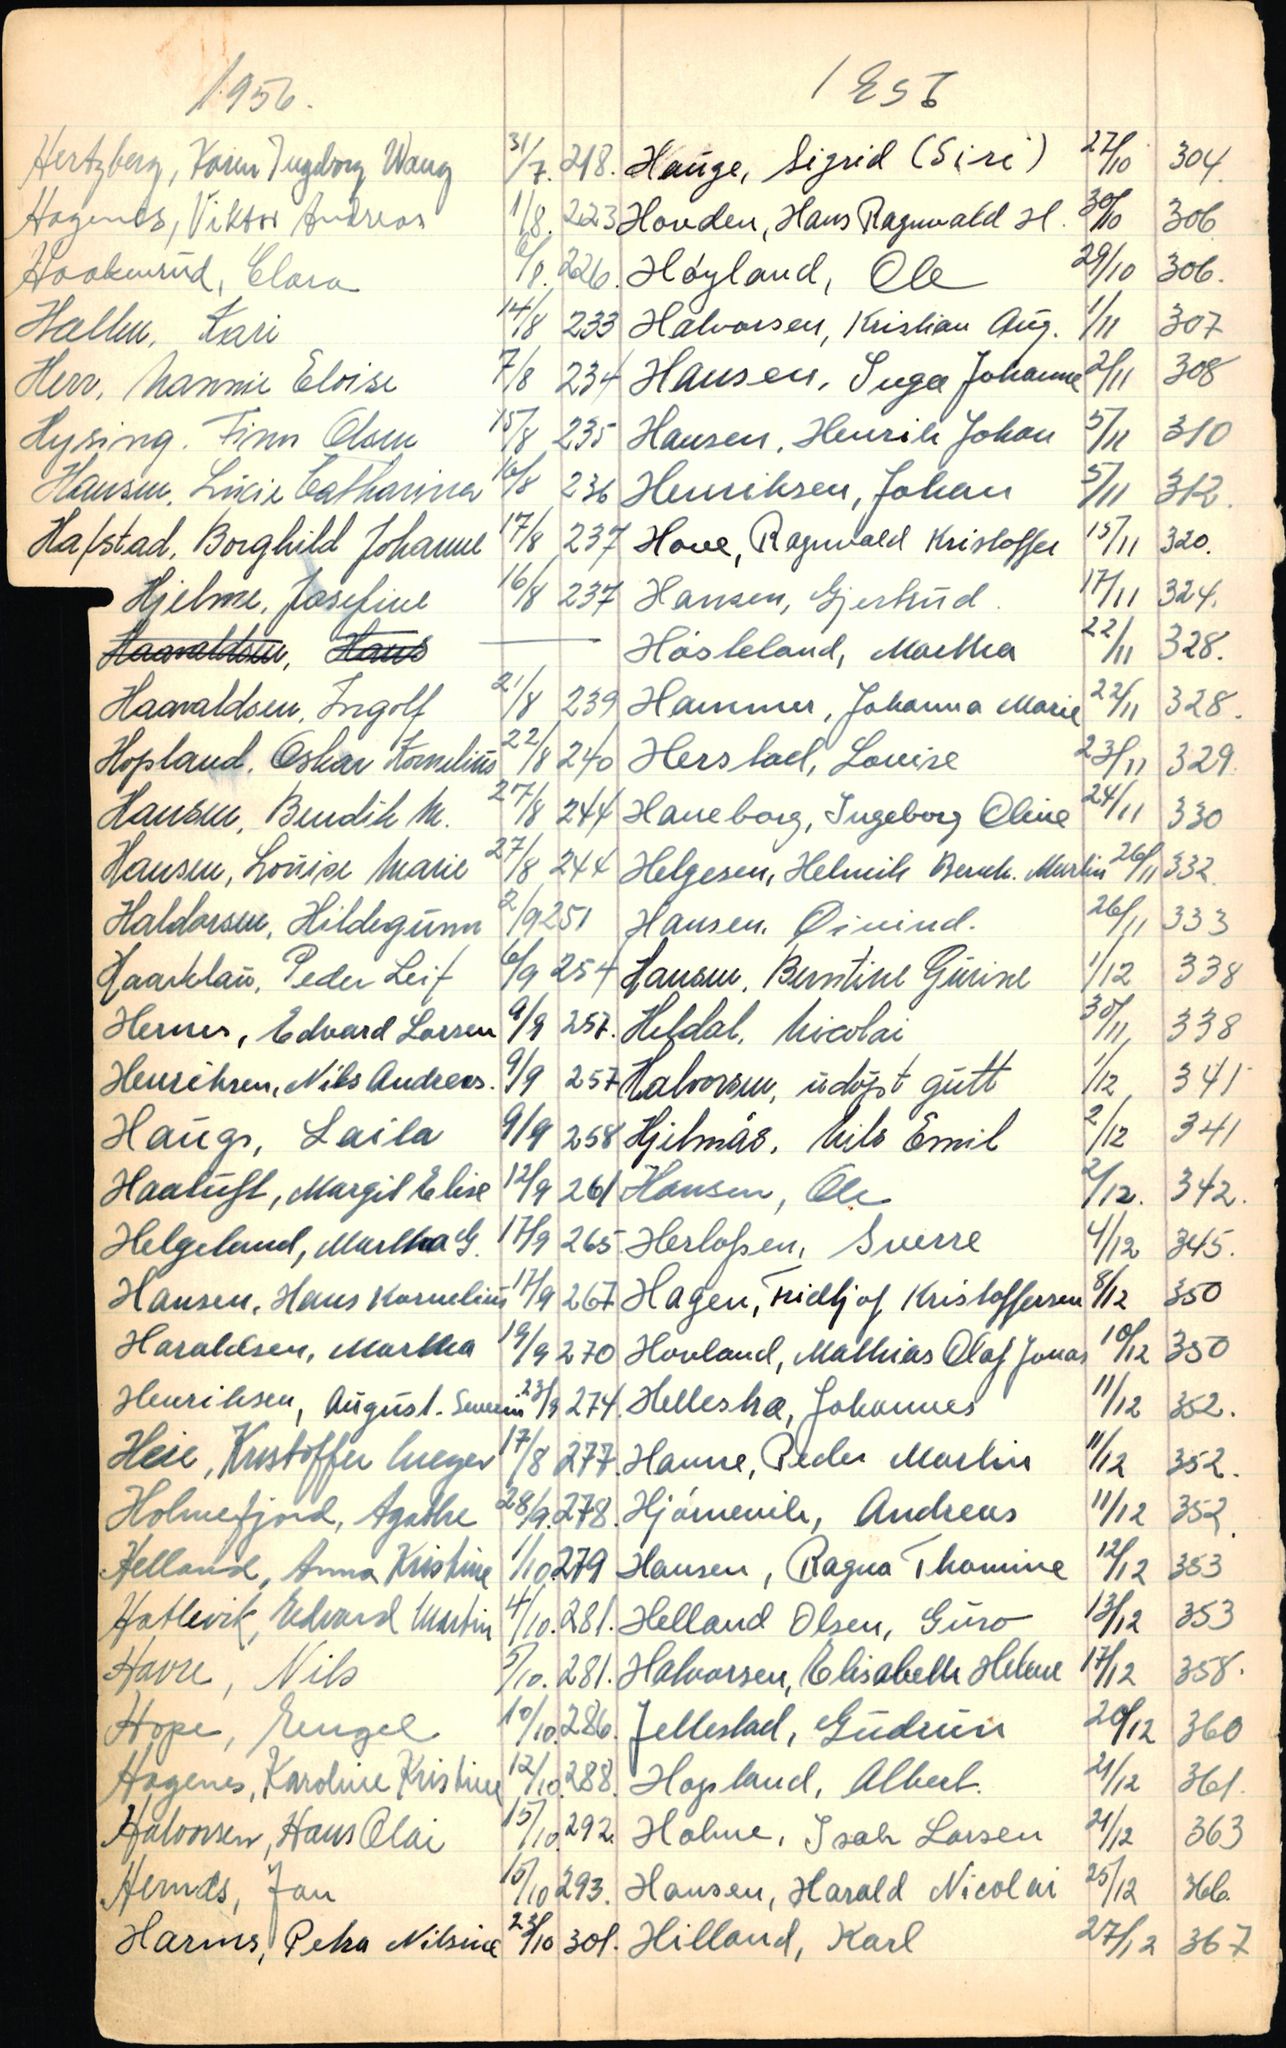 1956.
Hertzberg, Karen Ingeborg Wang 31/7. 218.
Hagenes, Viktor Andreas 1/8. 223
Haakenrud, Clara 6/8. 226.
Hallen, Kari 14/8 233
Herr, Nannie Eloise 7/8 234
Hysing. Finn Olsen 15/8 235
Hansen, Lucie Catharina 16/8 236
Hafstad, Borghild Johanne 17/8 237
Hjelme, Josefine 16/8 237
Haavaldsen, Hans
Haavaldsen, Ingolf 21/8 239
Hopland, Oskar Kornelius 22/8 240
Hansen, Bendik M. 27/8 244
Hansen, Louise Marie 27/8 244
Haldorsen, Hildegunn 2/9 251
Haarklau, Peder Leif 6/9 254
Hernes, Edvard Larsen 9/9 257.
Henriksen, Nils Andreas. 9/9 257
Haugs, Laila 9/9 258
Haatuft, Margit Elise 12/9 261
Helgeland, Martha G. 17/9 265
Hansen, Hans Kornelius 17/9 267
Haraldsen, Martha 19/9 270
Henriksen, August. Severin 23/9 274.
Heie, Kristoffer Meyer 17/8 277.
Holmefjord, Agathe 28/9. 278.
Helland, Anna Kristine 1/10. 279
Hatlevik, Edvard Martin 4/10. 281.
Havre, Nils 5/10. 281.
Hope, Engel 10/10. 286.
Hagenes, Karoline Kristine 12/10. 288.
Halvorsen, Hans Olai 15/10. 292.
Hernes, Jan 15/10 293.
Harms, Petra Nilsine 23/10 301.
1956
Hauge, Sigrid (Siri) 27/10 304.
Hovden, Hans Ragnvald H. 30/10 306
Høyland, Ole 29/10 306.
Halvorsen, Kristian Aug. 1/11 307
Hansen, Inga Johanne 2/11 308
Hansen, Henrik Johan 5/11 310
Henriksen, Johan 5/11 312.
Hove, Ragnvald Kristoffer 15/11 320.
Hansen, Gjertrud. 17/11 324.
Høsteland, Martha 22/11 328.
Hammer, Johanna Marie 22/11 328.
Herstad, Louise 23/11 329.
Haneborg, Ingeborg Oline 24/11 330
Helgesen, Helmik Bernh. Martin 26/11 332.
Hansen. Øivind. 26/11 333
Hansen, Berntine Gurine 1/12 338
Heldal, Nicolai 30/11 338
Halvorsen, udøpt gutt 1/12 341
Hjelmås, Nils Emil 2/12 341
Hansen, Ole 2/12. 342.
Herlofsen, Sverre 4/12 345.
Hagen, Fridtjof Kristoffersen 8/12 350
Hovland, Mathias Olaf Jonas 10/12 350
Hellesha, Johannes 11/12 352.
Hanne, Peder Martin 11/12 352.
Hjørnevik, Andreas 11/12 352.
Hansen, Ragna Thomine 12/12 353
Helland Olsen, Guro 13/12 353
Halvorsen, Elisabeth Helene 17/12 358.
Jellestad, Gudrun 20/12 360
Hopland, Albert. 21/12 361.
Holme, Isak Larsen 21/12 363
Hansen, Harald Nicolai 25/12 366.
Hilland, Karl 27/12 367